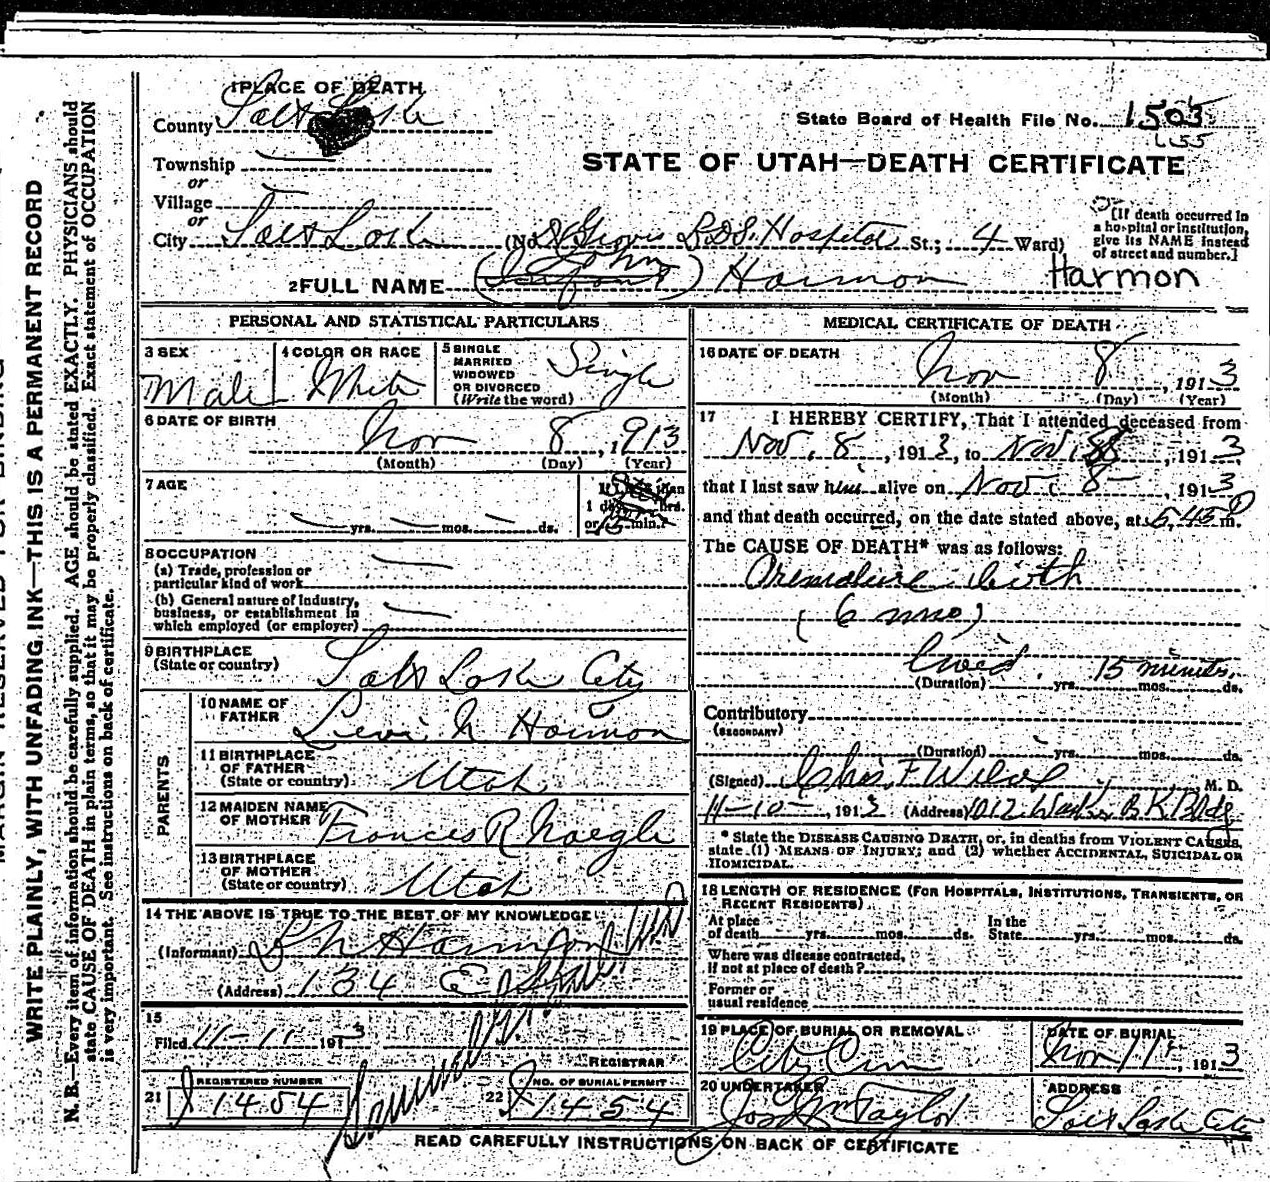 1 PLACE OF DEATH
County Salt Lake
State Board of Health File No. 1505
STATE OF UTAH—DEATH CERTIFICATE
Township
or
Village
or
City Salt Lake (No. L.D.S. Hospital St.; 4 Ward)
[If death occurred in a hospital or institution, give its NAME instead of street and number.]
2 FULL NAME (John) Harmon Harmon
PERSONAL AND STATISTICAL PARTICULARS
3 SEX Male
4 COLOR OR RACE White
5 SINGLE MARRIED WIDOWED OR DIVORCED (Write the word) Single
6 DATE OF BIRTH Nov 8, 1913
(Month) (Day) (Year)
7 AGE
yrs. mos. ds.
If less than 1 day, hrs. or 15 min.?
8 OCCUPATION
(a) Trade, profession or particular kind of work
(b) General nature of industry, business, or establishment in which employed (or employer)
9 BIRTHPLACE
(State or country) Salt Lake City
PARENTS
10 NAME OF FATHER Levi N Harmon
11 BIRTHPLACE OF FATHER (State or country) Utah
12 MAIDEN NAME OF MOTHER Frances R Naegle
13 BIRTHPLACE OF MOTHER (State or country) Utah
14 THE ABOVE IS TRUE TO THE BEST OF MY KNOWLEDGE
(Informant) L N Harmon
(Address) 134 E
15
Filed 11-11 1913
REGISTRAR
21 REGISTERED NUMBER J 1454
22 NO. OF BURIAL PERMIT J 1454
MEDICAL CERTIFICATE OF DEATH
16 DATE OF DEATH
Nov 8, 1913
(Month) (Day) (Year)
17 I HEREBY CERTIFY, That I attended deceased from
Nov. 8, 1913, to Nov. 8, 1913
that I last saw him alive on Nov. 8, 1913
and that death occurred, on the date stated above, at 5.45 P m.
The CAUSE OF DEATH* was as follows:
Premature birth
(6 mo)
Lived 15 minutes.
(Duration) yrs. mos. ds.
Contributory
(SECONDARY)
(Duration) yrs. mos. ds.
(Signed) Chas. F Wilcox M. D.
11-10- 1913 (Address) 1012 Walker B K Bldg
* State the DISEASE CAUSING DEATH, or, in deaths from VIOLENT CAUSES, state (1) MEANS OF INJURY; and (2) whether ACCIDENTAL, SUICIDAL OR HOMICIDAL.
18 LENGTH OF RESIDENCE (FOR HOSPITALS, INSTITUTIONS, TRANSIENTS, OR RECENT RESIDENTS)
At place of death yrs. mos. ds. In the State yrs. mos. ds.
Where was disease contracted, If not at place of death?
Former or usual residence
19 PLACE OF BURIAL OR REMOVAL
City Cem
DATE OF BURIAL
Nov 11, 1913
20 UNDERTAKER
Jos Wm Taylor
ADDRESS
Salt Lake City
READ CAREFULLY INSTRUCTIONS ON BACK OF CERTIFICATE
WRITE PLAINLY, WITH UNFADING INK—THIS IS A PERMANENT RECORD
N. B.—Every item of information should be carefully supplied. AGE should be stated EXACTLY. PHYSICIANS should
state CAUSE OF DEATH in plain terms, so that it may be properly classified. Exact statement of OCCUPATION
is very important. See instructions on back of certificate.